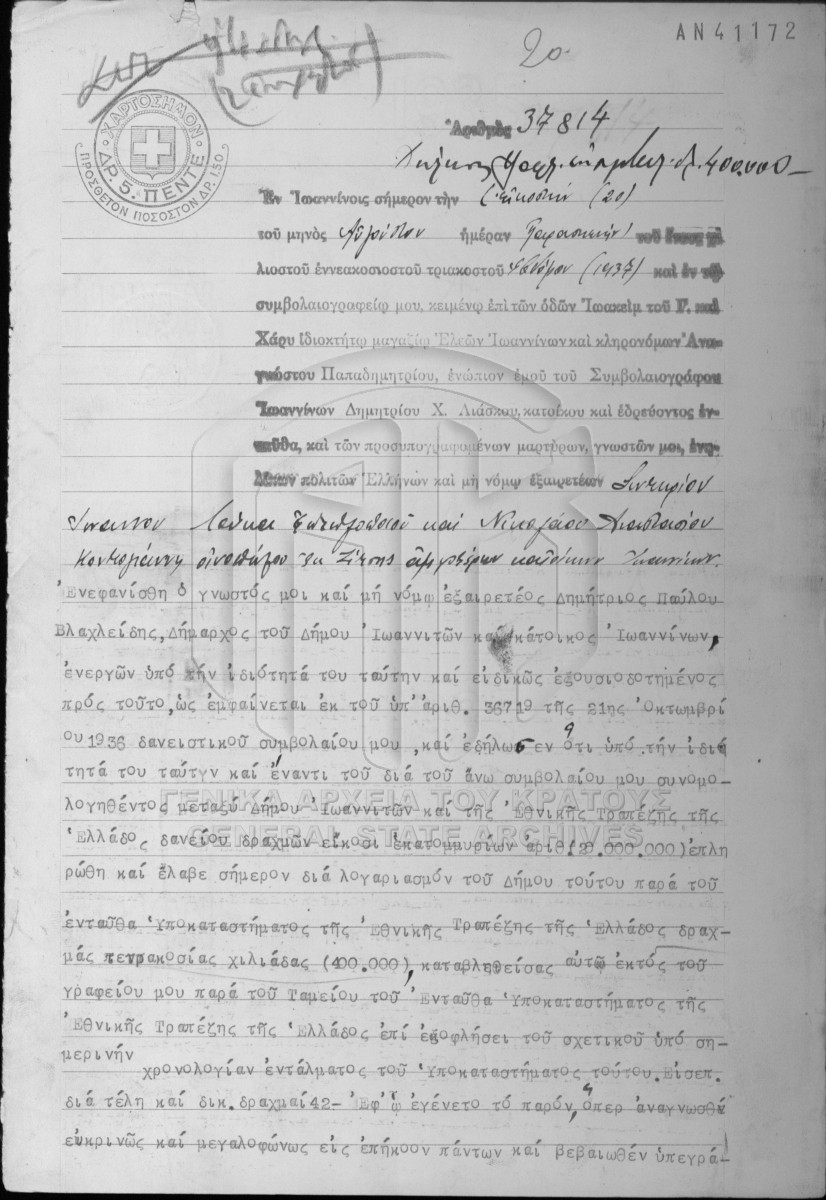 AN41172
20
ΧΑΡΤΟΣΗΜΟΝ
ΔΡ. 5. ΠΕΝΤΕ
ΠΡΟΣΘΕΤΟΝ ΠΟΣΟΣΤΟΝ ΔΡ. 1.50
Ἀριθμὸς 37814
400.000
Ἐν Ἰωαννίνοις σήμερον τὴν εἰκοστὴν (20)
τοῦ μηνὸς Αὐγούστου ἡμέραν Παρασκευὴν τοῦ ἔτους χι
λιοστοῦ ἐννεακοσιοστοῦ τριακοστοῦ ἑβδόμου (1937) καὶ ἐν τῷ
συμβολαιογραφείῳ μου, κειμένῳ ἐπὶ τῶν ὁδῶν Ἰωακεὶμ τοῦ Γ. καὶ
Χάρυ ἰδιοκτήτῳ μαγαζίῳ Ἐλεῶν Ἰωαννίνων καὶ κληρονόμων Ἀνα-
γνώστου Παπαδημητρίου, ἐνώπιον ἐμοῦ τοῦ Συμβολαιογράφου
Ἰωαννίνων Δημητρίου Χ. Λιάσκου, κατοίκου καὶ ἑδρεύοντος ἐν-
ταῦθα, καὶ τῶν προσυπογραφομένων μαρτύρων, γνωστῶν μοι, ἐνη-
λίκων πολιτῶν Ἑλλήνων καὶ μὴ νόμῳ ἐξαιρετέων Σωτηρίου
Ἰωάννου καὶ Νικολάου Ἀναστασίου
Κοντογιάννη ἐκ Ζίτσης ἀμφοτέρων κατοίκων Ἰωαννίνων.
Ἐνεφανίσθη ὁ γνωστός μοι καί μή νόμῳ ἐξαιρετέος Δημήτριος Παύλου
Βλαχλείδης, Δήμαρχος τοῦ Δήμου Ἰωαννιτῶν καί κάτοικος Ἰωαννίνων,
ἐνεργῶν ὑπό τήν ἰδιότητά του ταύτην καί εἰδικῶς ἐξουσιοδοτημένος
πρός τοῦτο, ὡς ἐμφαίνεται ἐκ τοῦ ὑπ' ἀριθ. 36719 τῆς 21ης Ὀκτωμβρί
ου 1936 δανειστικοῦ συμβολαίου μου, καί ἐξήλωσεν ὅτι ὑπό τήν ἰδιό
τητά του ταύτγν καί ἔναντι τοῦ διά τοῦ ἄνω συμβολαίου μου συνομο-
λογηθέντος μεταξύ Δήμου Ἰωαννιτῶν καί τῆς Ἐθνικῆς Τραπέζης τῆς
Ἑλλάδος δανείου δραχμῶν εἴκοσι ἑκατομμυρίων ἀριθ. (20.000.000) ἐπλη
ρώθη καί ἔλαβε σήμερον διά λογαριασμόν τοῦ Δήμου τούτου παρά τοῦ
ἐνταῦθα Ὑποκαταστήματος τῆς Ἐθνικῆς Τραπέζης τῆς Ἑλλάδος δραχ-
μάς τετρακοσίας χιλιάδας (400.000), καταβληθείσας αὐτῷ ἐκτός τοῦ
γραφείου μου παρά τοῦ Ταμείου τοῦ Ἐνταῦθα Ὑποκαταστήματος τῆς
Ἐθνικῆς Τραπέζης τῆς Ἑλλάδος ἐπί ἐξοφλήσει τοῦ σχετικοῦ ὑπό ση-
μερινήν χρονολογίαν ἐντάλματος τοῦ Ὑποκαταστήματος τούτου. Εἰσεπ.
διά τέλη καί δικ. δραχμαί 42- Ἐφ' ᾧ ἐγένετο τό παρόν, ὅπερ ἀναγνωσθέ
εὐκρινῶς καί μεγαλοφώνως εἰς ἐπήκοον πάντων καί βεβαιωθέν ὑπεγρά-
ΓΕΝΙΚΑ ΑΡΧΕΙΑ ΤΟΥ ΚΡΑΤΟΥΣ
GENERAL STATE ARCHIVES